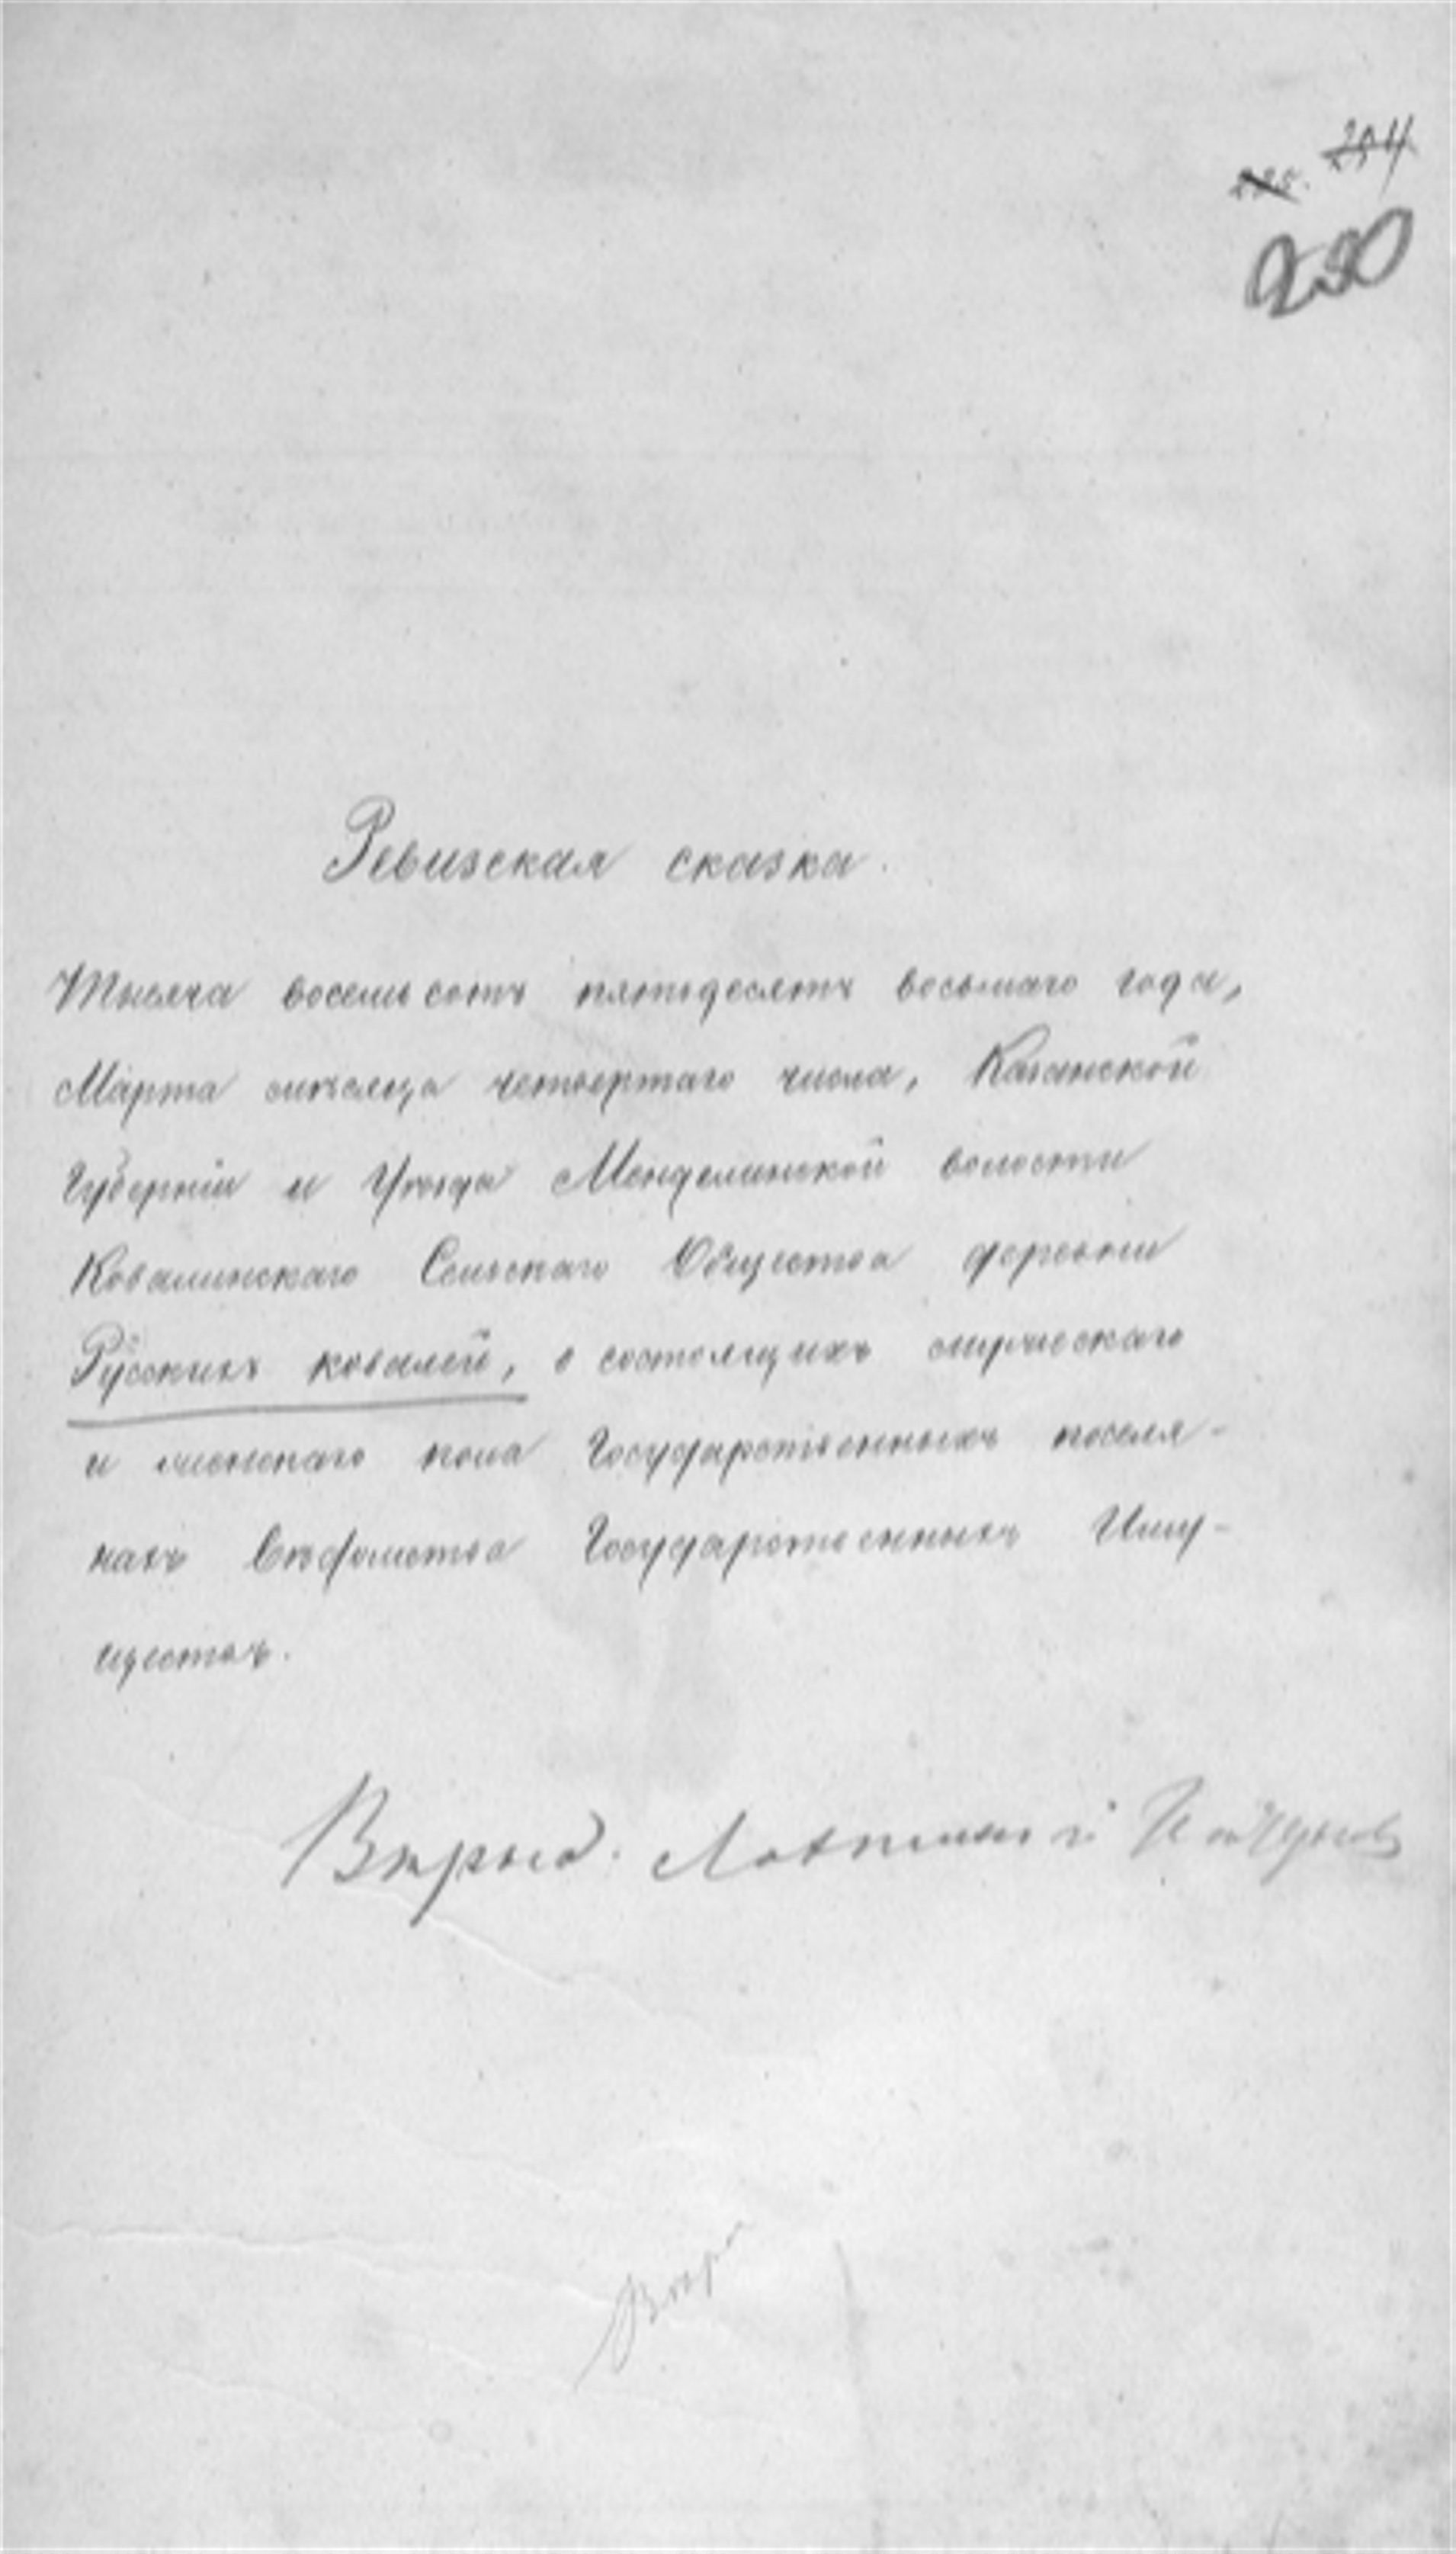 204
230
Ревизская сказка.
Тысяча восемьсотъ пятьдесятъ восьмаго года,
Марта мѣсяца четвертаго числа, Казанской
Губерніи и Уѣзда Менделинской волости
Ковалинскаго Сельскаго Общества деревни
Русскихъ ковалей, о состоящихъ мужескаго
и женскаго пола Государственныхъ поселя-
нахъ Вѣдомства Государственныхъ Иму-
ществъ.